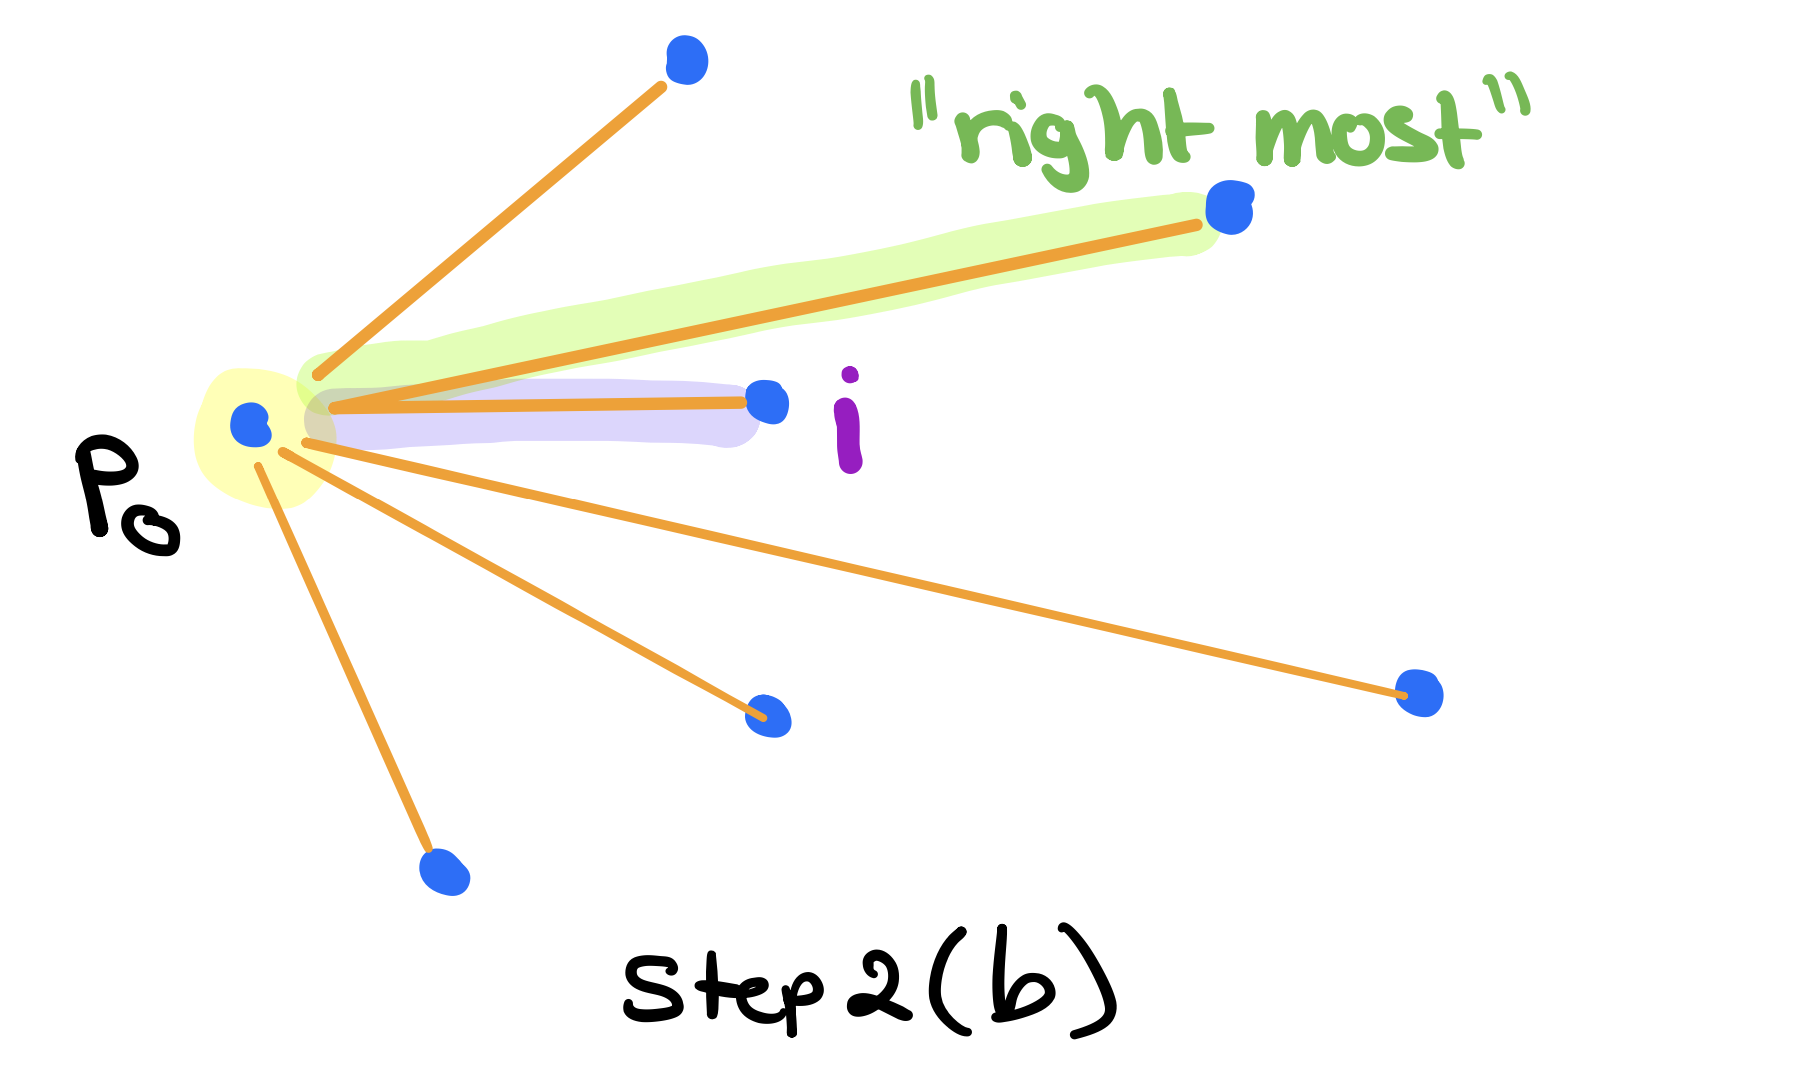 "right most"
i
P0
Step 2(b)